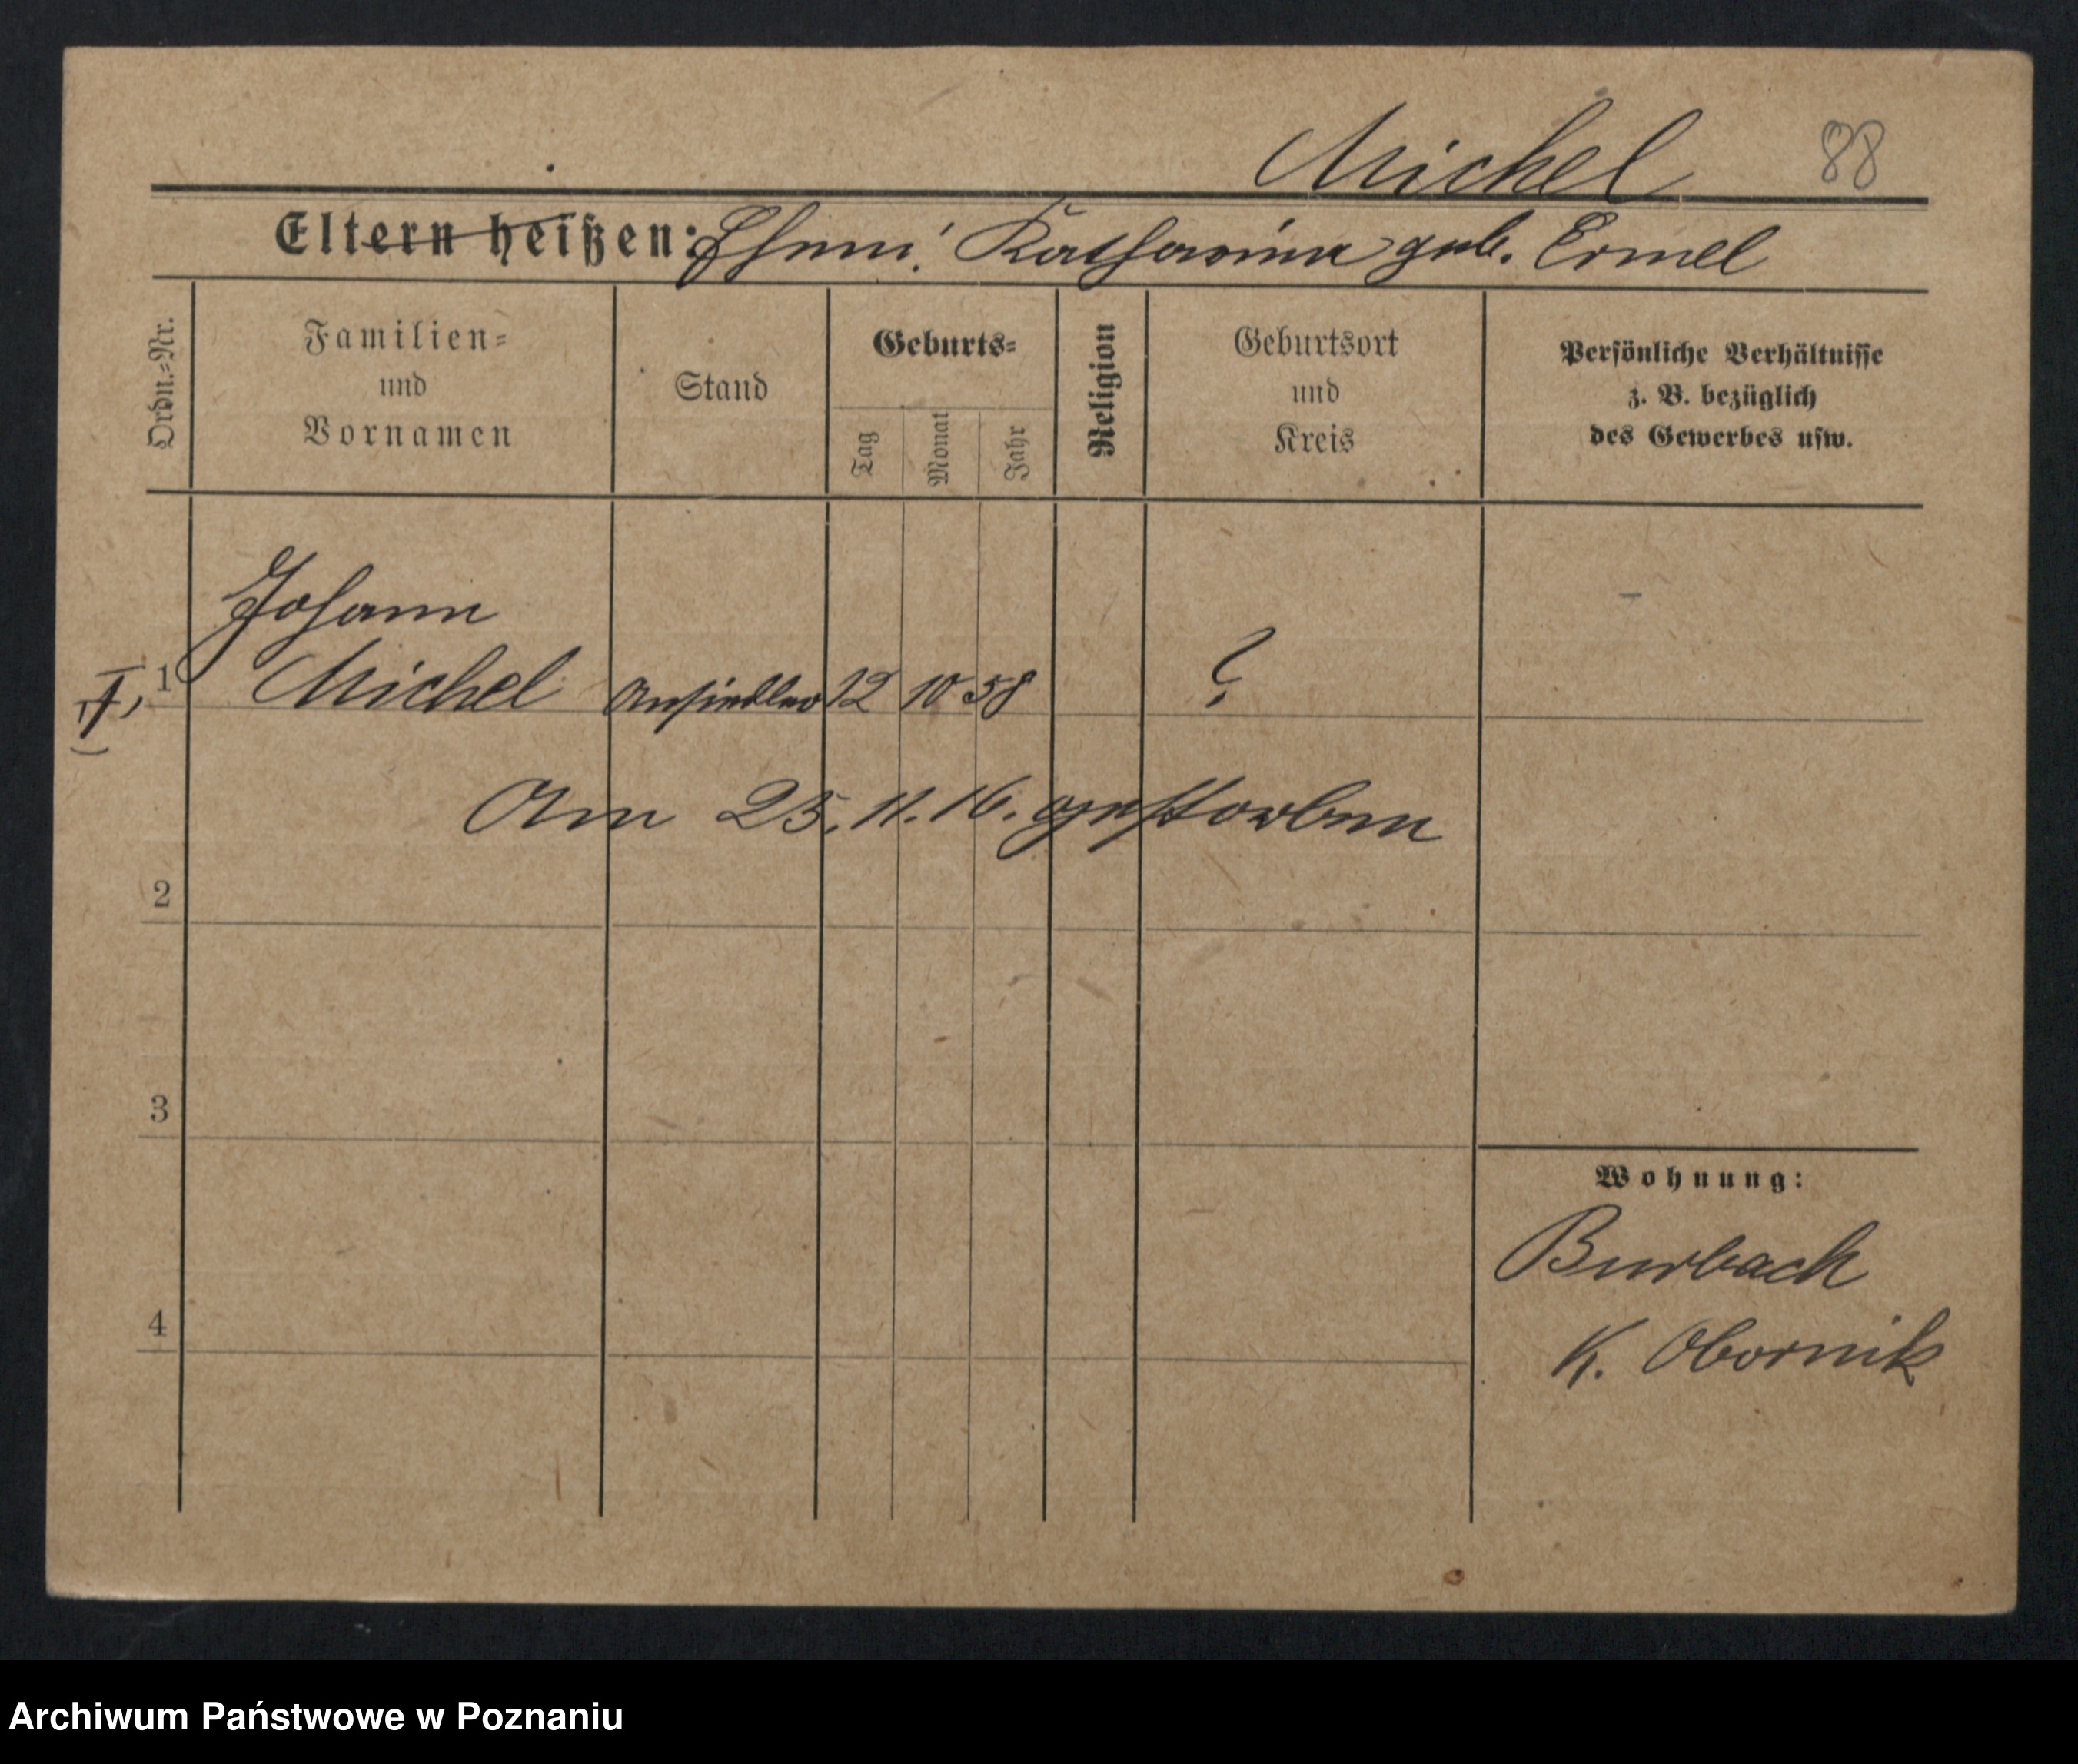 Michel 88
Eltern heißen: Ehem: Katharina geb. Ermel
Ordn.=Nr.
Familien=
und
Vornamen
Stand
Geburts=
Tag
Monat
Jahr
Religion
Geburtsort
und
Kreis
Persönliche Verhältnisse
z. B. bezüglich
des Gewerbes usw.
Johann
1 Michel Ansiedler 12 10 58 ?
Am 25. 11. 16. gestorben
2
3
4
Wohnung:
Burbach
K. Obornik
Archiwum Państwowe w Poznaniu